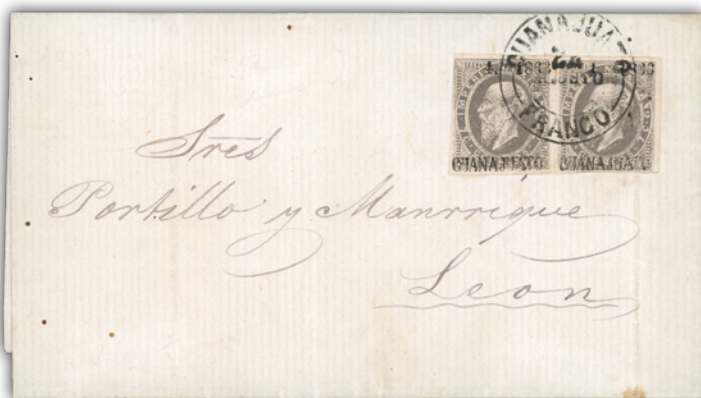 GUANAJUATO
AGOSTO
FRANCO
IMPERIO
GUANAJUATO GUANAJUATO
Sres
Portillo y Manrrique
León